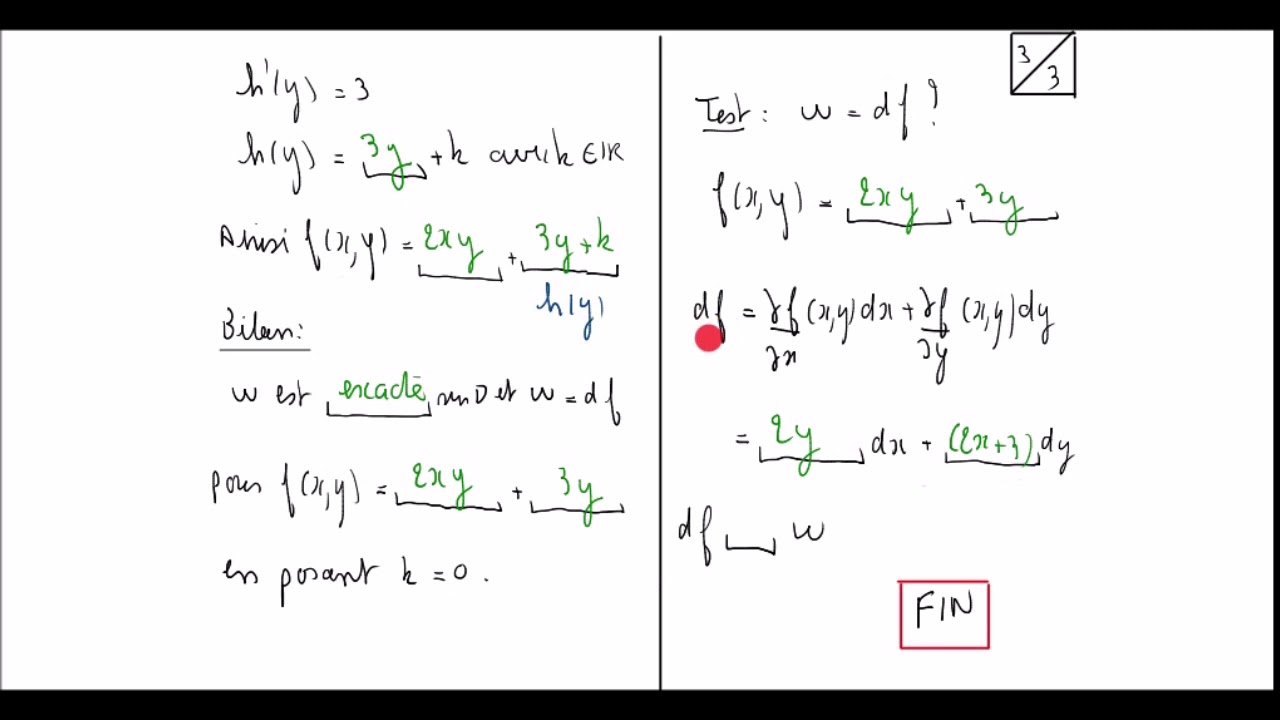 h'(y) = 3
h(y) = 3y + k avec k ∈ IR
Ainsi f(x,y) = 2xy + 3y + k
h(y)
Bilan:
w est exacte sur D et w = df
pour f(x,y) = 2xy + 3y
en posant k = 0.
3/3
Test : w = df ?
f(x,y) = 2xy + 3y
df = ∂f/∂x (x,y) dx + ∂f/∂y (x,y) dy
= 2y dx + (2x+3) dy
df w
FIN